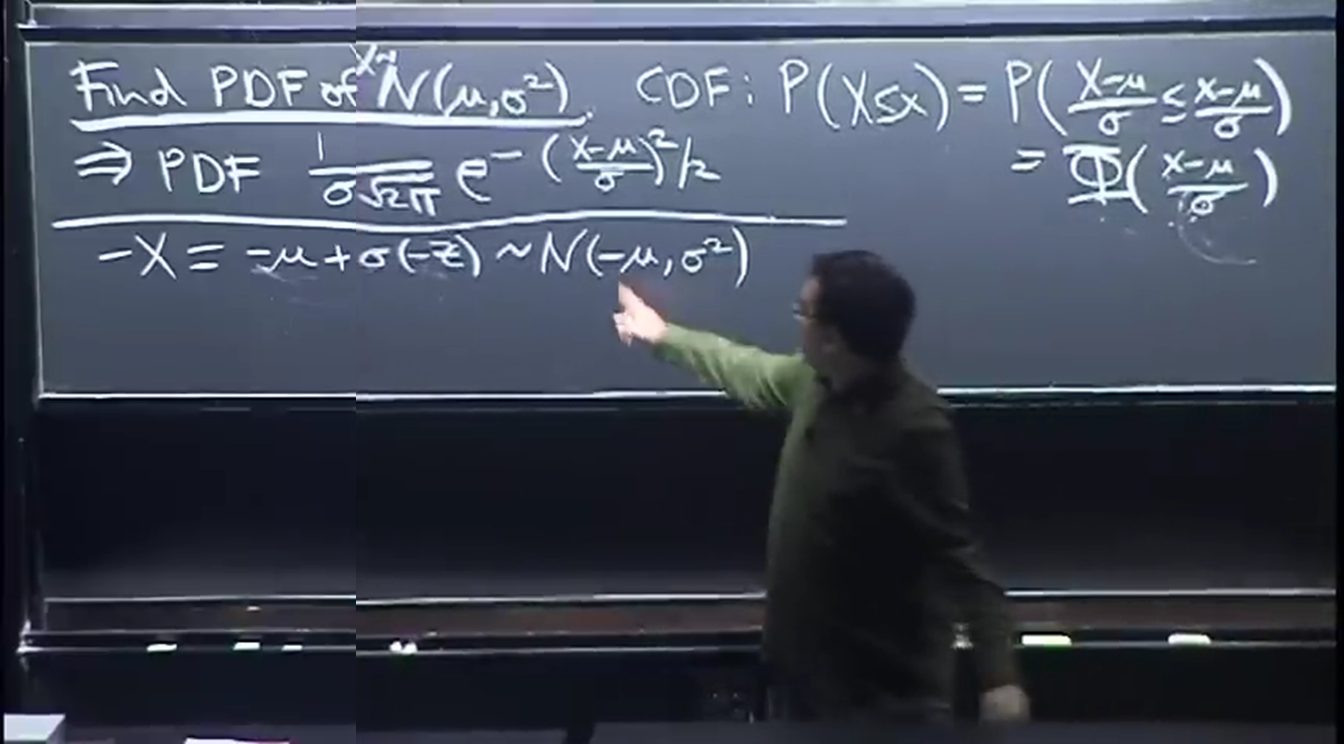 Find PDF of X~N(μ,σ²). CDF: P(X≤x) = P((X-μ)/σ ≤ (x-μ)/σ)
⇒ PDF 1/(σ√2π) e^-((x-μ)/σ)²/2
= Φ((x-μ)/σ)
-X = -μ+σ(-Z) ~ N(-μ,σ²)